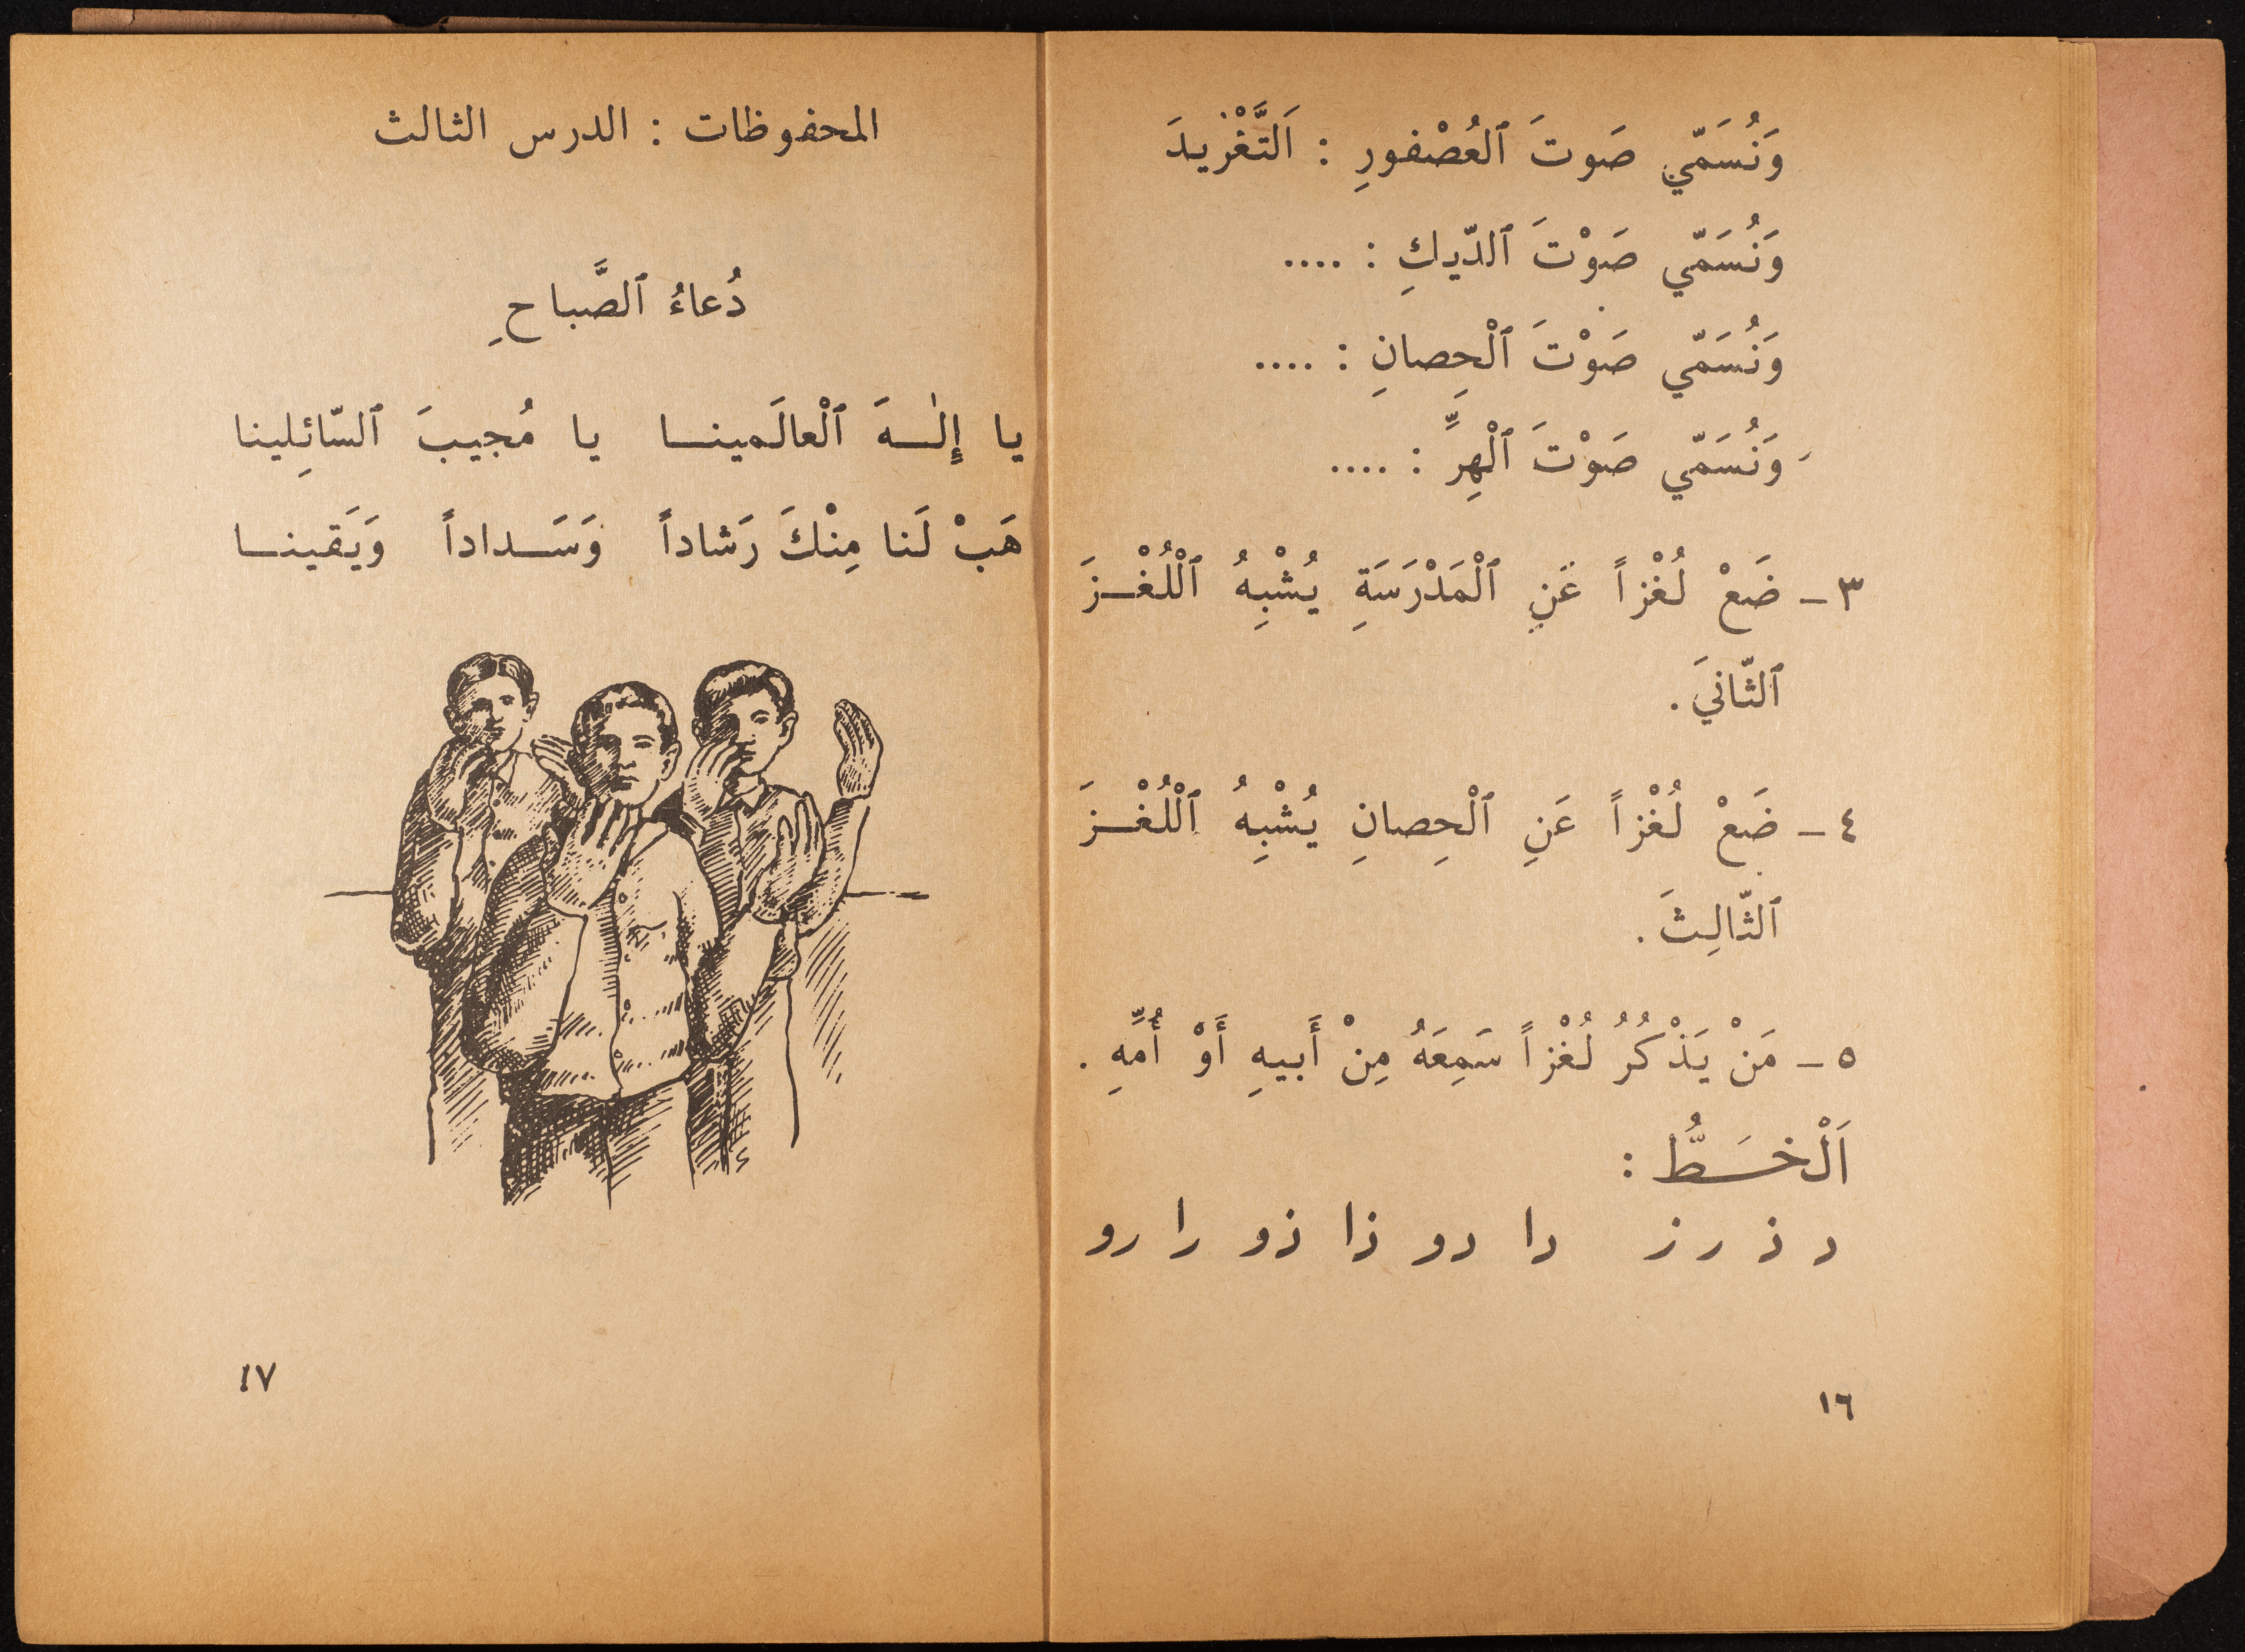 وَنُسَمّي صَوتَ ٱلعُصْفورِ : اَلتَّغْريدَ
وَنُسَمّي صَوْتَ ٱلدّيكِ : ....
وَنُسَمّي صَوْتَ ٱلْحِصانِ : ....
وَنُسَمّي صَوْتَ ٱلْهِرِّ : ....
٣ – ضَعْ لُغْزاً عَنِ ٱلْمَدْرَسَةِ يُشْبِهُ ٱلْلُغْـــزَ
ٱلثّانيَ .
٤ – ضَعْ لُغْزاً عَنِ ٱلْحِصانِ يُشْبِهُ ٱلْلُغْـــزَ
ٱلثّالِثَ .
٥ – مَنْ يَذْكُرُ لُغْزاً سَمِعَهُ مِنْ أَبيهِ أَوْ أُمِّهِ .
اَلْخَـــطُّ :
د ذ ر ز دا دو ذا ذو را رو
١٦
المحفوظات : الدرس الثالث
دُعاءُ ٱلصَّباحِ
يا إِلٰـــهَ ٱلْعالَمينـــا يا مُجيبَ ٱلسّائِلينا
هَبْ لَنا مِنْكَ رَشاداً وَسَـــداداً وَيَقينـــا
١٧